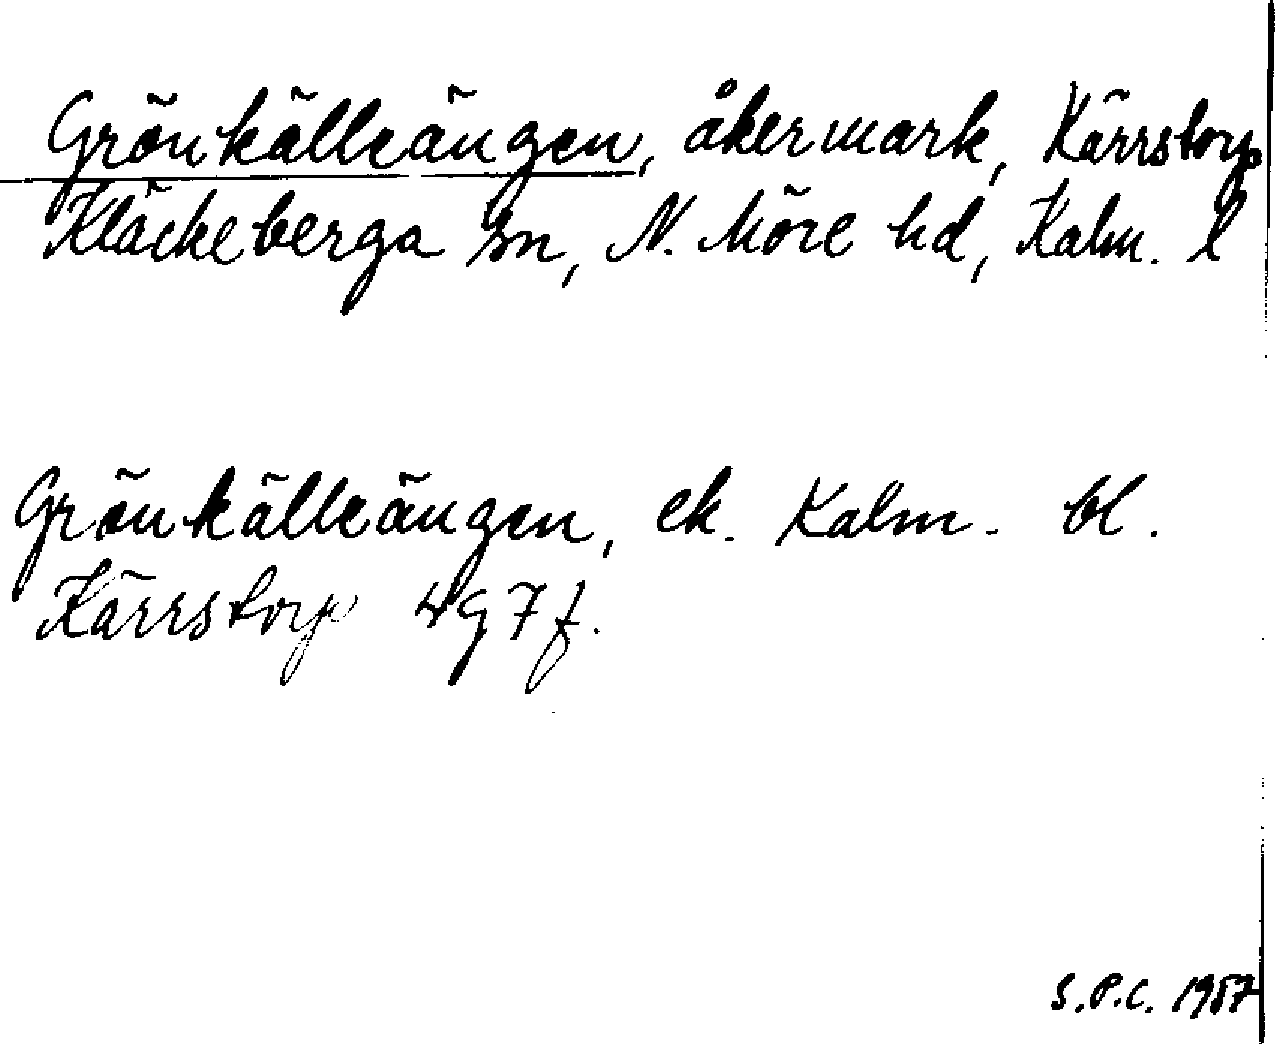 Grönkälleängen, åkermark, Kärrstorp
Kläckeberga sn, N. Möre hd, Kalm. l
Grönkälleängen, ek. Kalm. bl.
Kärrstorp 4g7f.
S.P.C. 1957